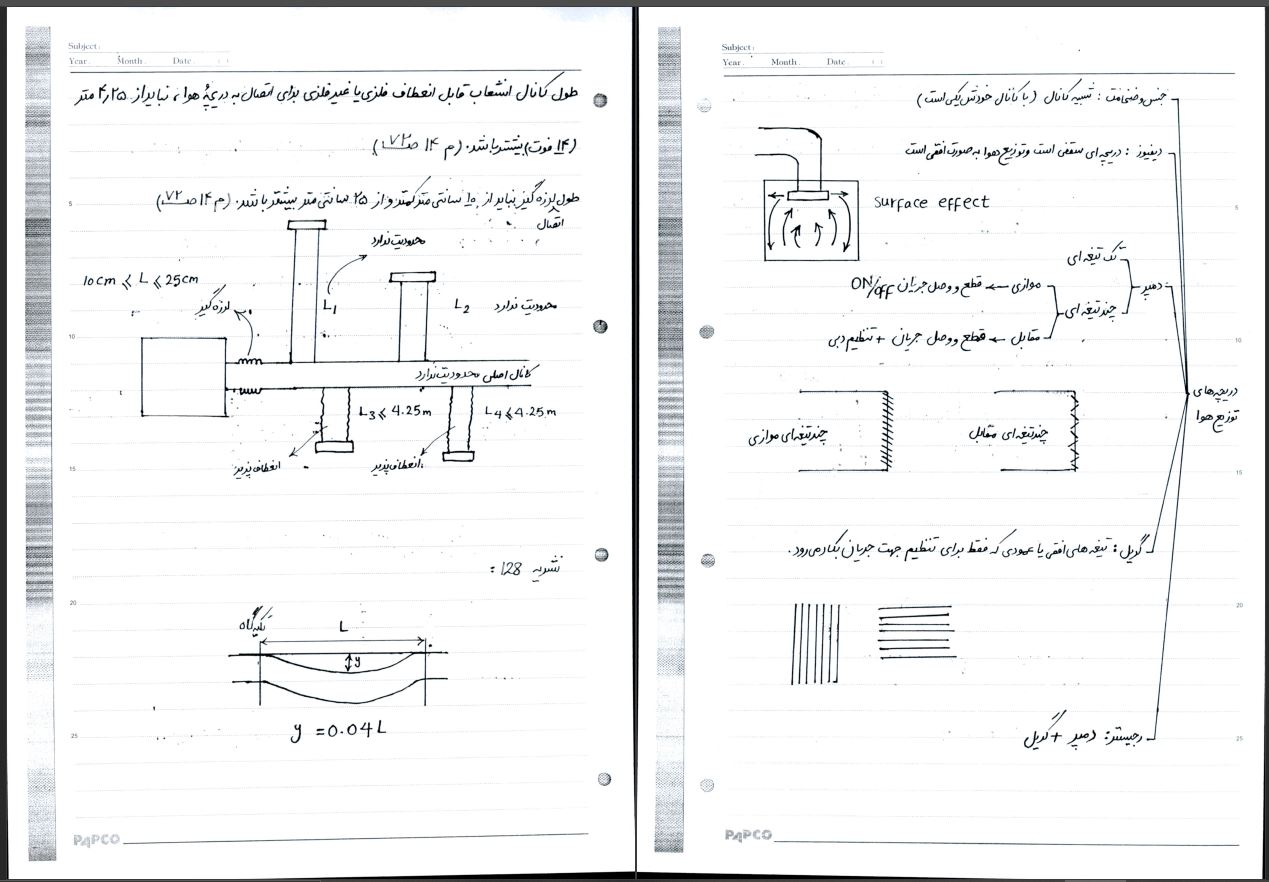 Subject:
Year. Month. Date. ( )
طول کانال انشعاب قابل انعطاف فلزی یا غیرفلزی برای اتصال به دریچهٔ هوا، نباید از ۴٫۲۵ متر
(۱۴ فوت) بیشتر باشد. (م ۱۴ صـ ۷۲)
طول لرزه گیر نباید از ۱۰ سانتی متر کمتر و از ۲۵ سانتی متر بیشتر باشد. (م ۱۴ صـ ۷۲)
اتصال
محدودیت ندارد
10cm ⩽ L ⩽ 25cm
لرزه گیر
L1
L2 محدودیت ندارد
کانال اصلی محدودیت ندارد
L3 ⩽ 4.25m
L4 ⩽ 4.25m
انعطاف پذیر
انعطاف پذیر
نشریه 128 :
تکیه گاه
L
y
y = 0.04L
5
10
15
20
25
PAPCO
Subject:
Year. Month. Date. ( )
جنس و ضخامت : شبیه کانال (با کانال خودش یکی است)
دیفیوزر : دریچه ای سقفی است و توزیع هوا به صورت افقی است
Surface effect
دمپر
تک تیغه ای
چند تیغه ای
موازی ← قطع و وصل جریان ON/OFF
مقابل ← قطع و وصل جریان + تنظیم دبی
دریچه های
توزیع هوا
چند تیغه ای مقابل
چند تیغه ای موازی
گریل : تیغه های افقی یا عمودی که فقط برای تنظیم جهت جریان بکار می رود.
رجیستر : دمپر + گریل
5
10
15
20
25
PAPCO